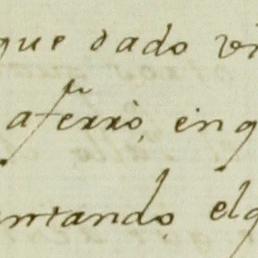 que dado vi
aferrò, en q
entando elq